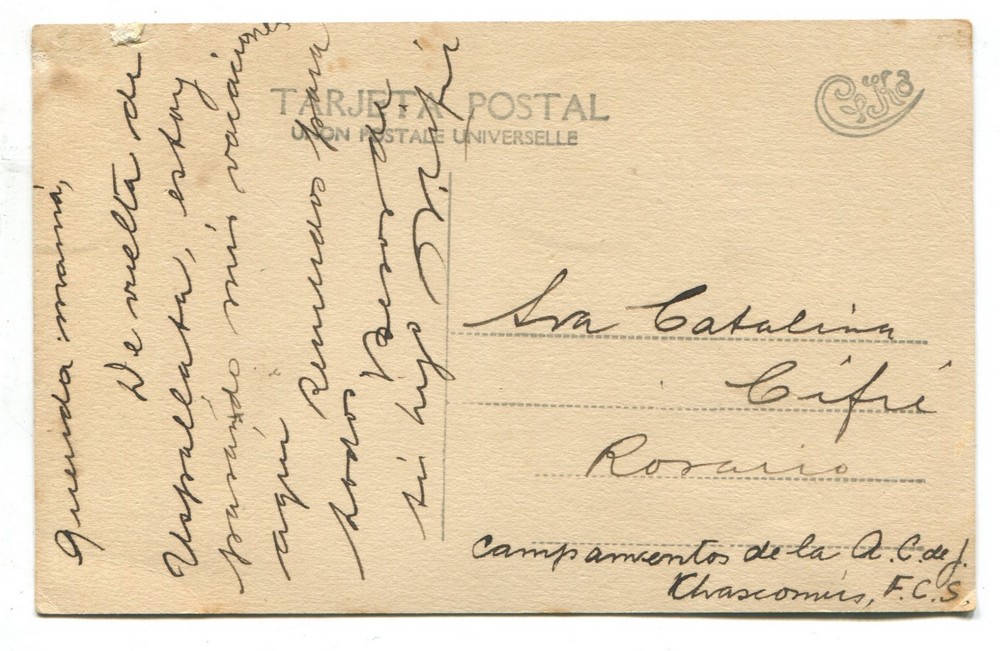 TARJETA POSTAL
UNION POSTALE UNIVERSELLE
Querida mamá,
De vuelta de
Uspallata, estoy
pasando mis vacaciones
aquí Renuevos para
todos Besos de
tu hijo
Sra Catalina
Cifré
Rosario
Campamentos de la A. C. de J.
Chascomús, F. C. S.